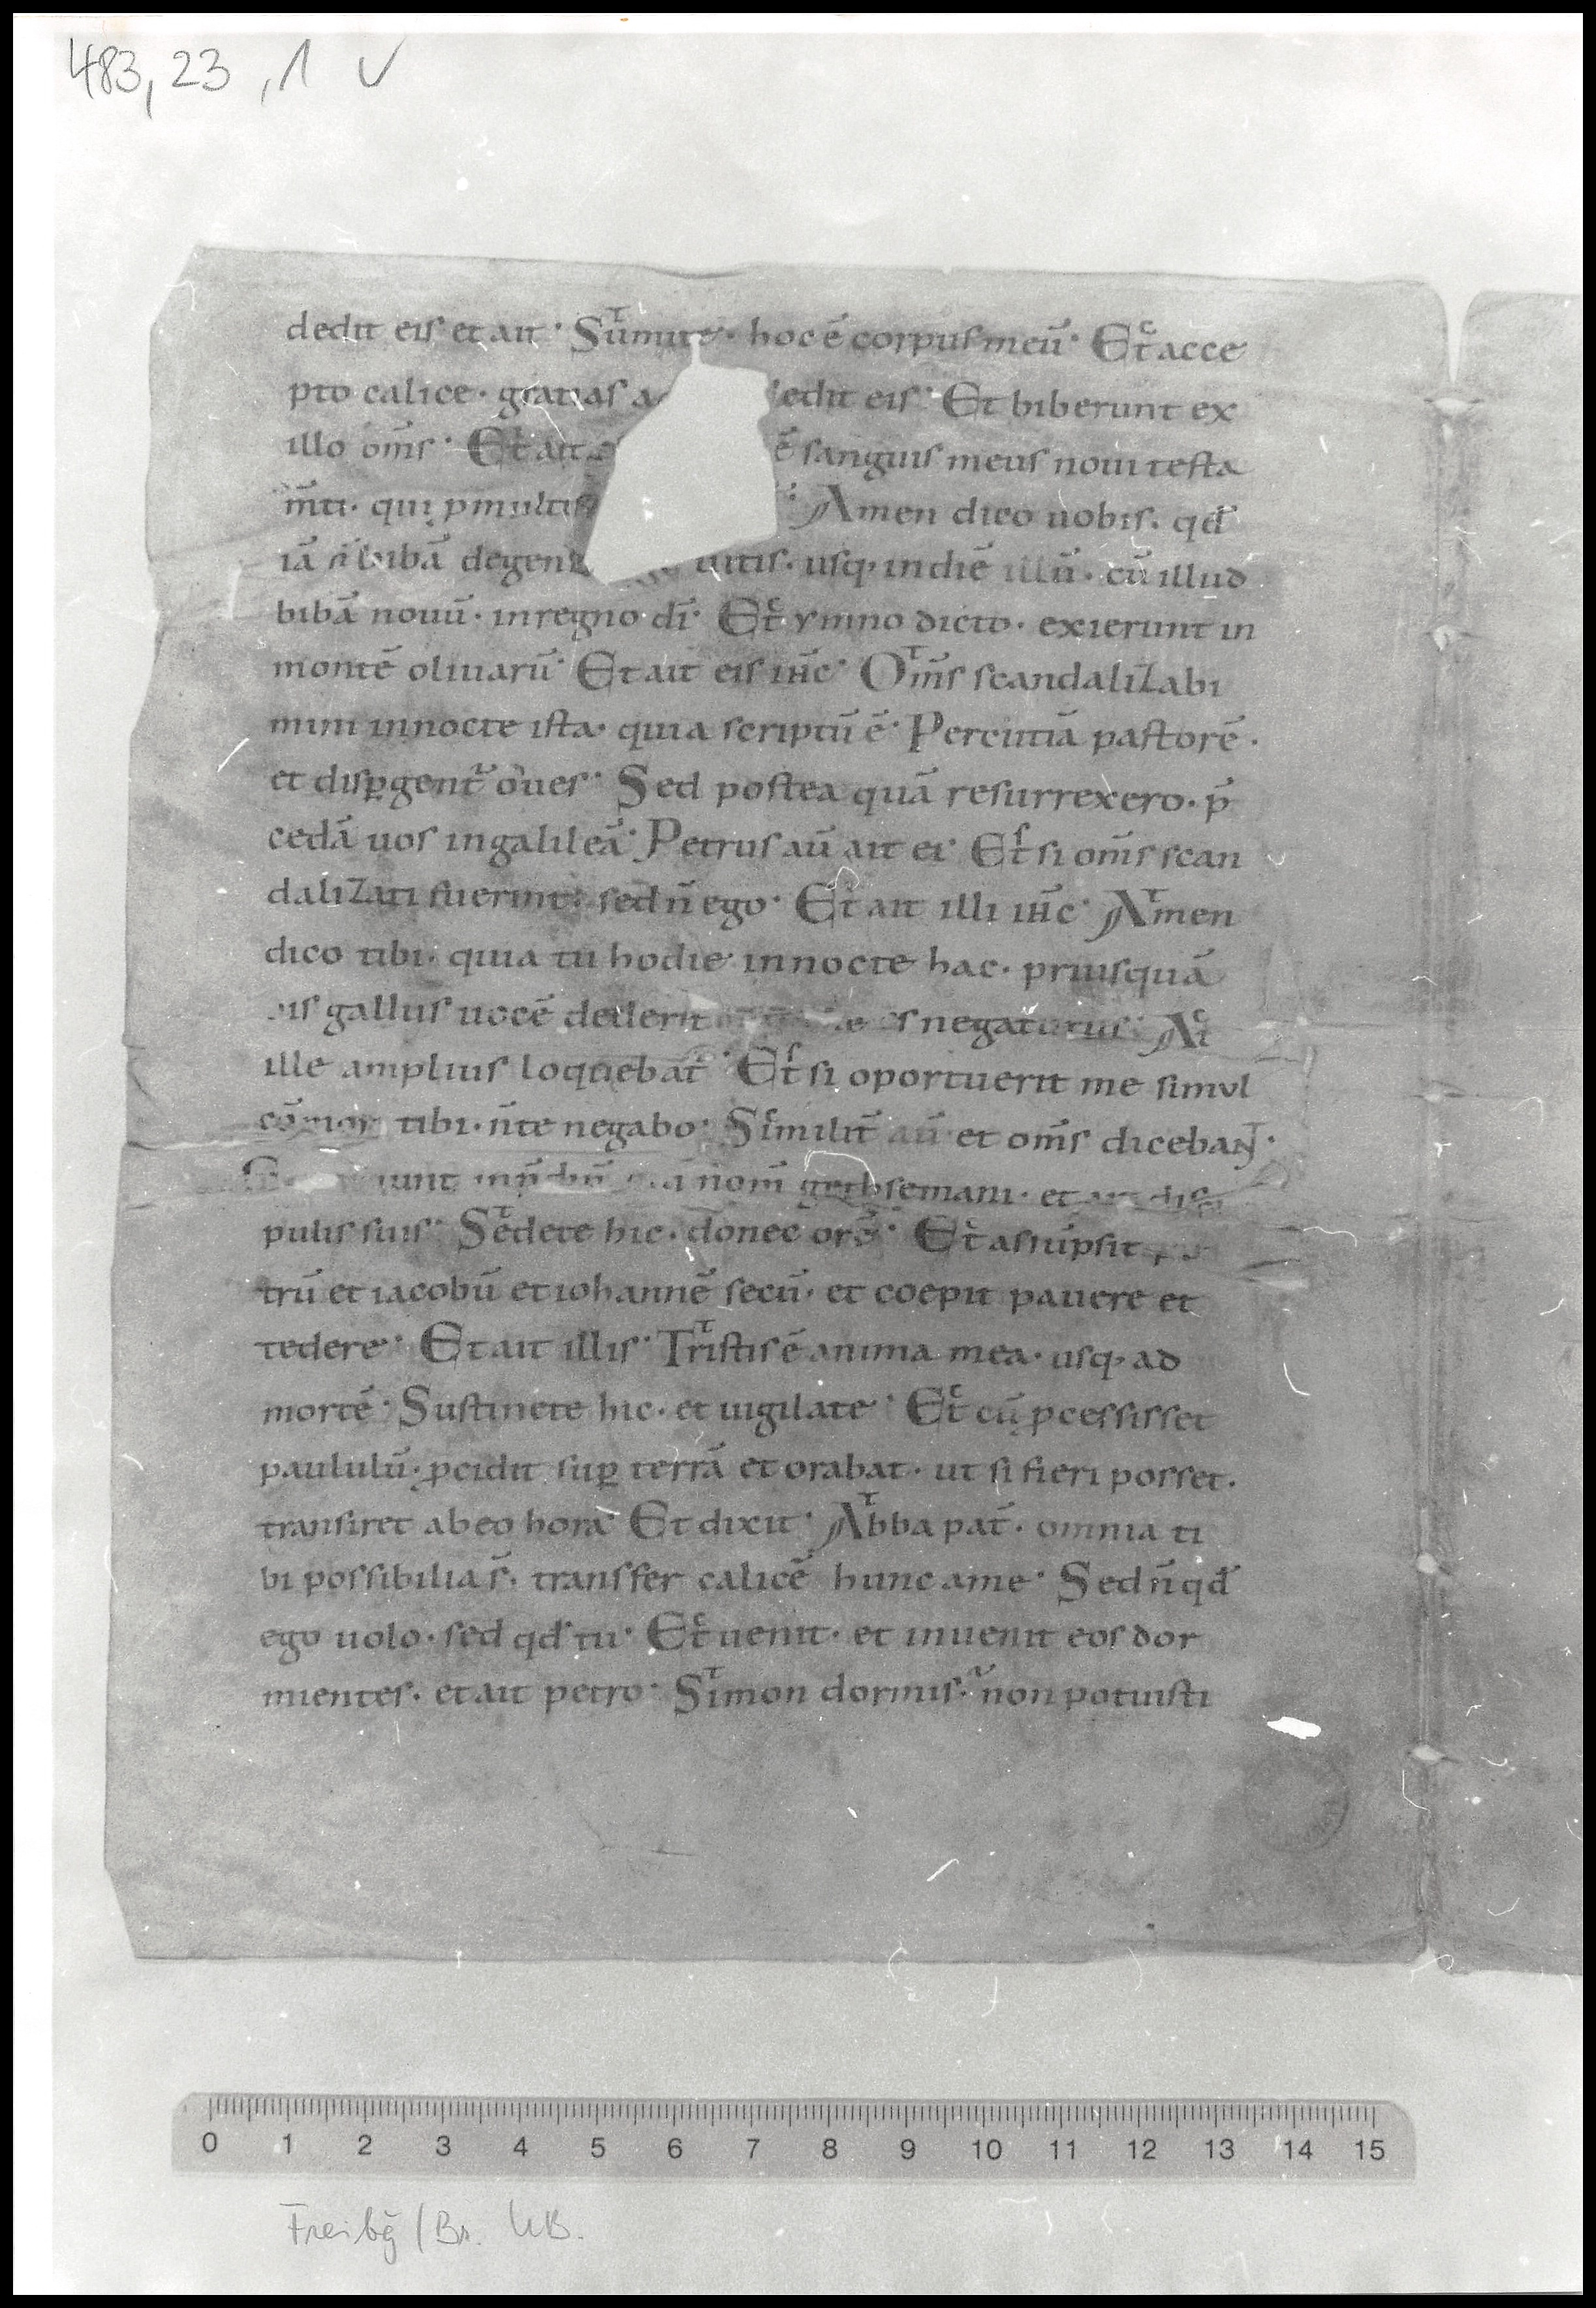 483, 23 , 1 v
dedit eis et ait· Sumite· hoc ē corpus meū· Et acce
pto calice· gratias edit eis· Et biberunt ex
illo om̄s· Et ait ē sanguis meus noui testa
m̄ti· qui ꝓ multis · Amen dico uobis· qđ
iā n̄ bibā de geni uitis· usq· in diē illū· cū illud
bibā nouū· in regno dī· Et ymno dicto· exierunt in
montē oliuarū· Et ait eis ih̄c· Om̄s scandaliZabi
mini in nocte ista· quia scriptū ē· Percutiā pastorē·
et disꝑgent᷑ oues· Sed postea quā resurrexero· p̄
cedā uos in galileā· Petrus aū ait ei· Et si om̄s scan
daliZati fuerint· sed n̄ ego· Et ait illi ih̄c· Amen
dico tibi· quia tu hodie in nocte hac· priusquā
gallus uocē dederit negaturus· At
ille amplius loquebat᷑· Et si oportuerit me simul
cōmori tibi· n̄ te negabo· Similit̄ aū et om̄s dicebant·
nom̄ gethsemani· et ait disci
pulis suis· Sedete hic· donec orē· Et assūpsit
trū et iacobū et iohannē secū· et coepit pauere et
tedere· Et ait illis· Tristis ē anima mea· usq· ad
mortē· Sustinete hic· et uigilate· Et cū ꝓcessisset
paululū· ꝓcidit suꝑ terrā et orabat· ut si fieri posset·
transiret ab eo hora· Et dixit· Abba pat̄· omnia ti
bi possibilia s̄· transfer calicē hunc a me· Sed n̄ qđ
ego uolo· sed qđ tu· Et uenit· et inuenit eos dor
mientes· et ait petro· Simon dormis· non potuisti
0 1 2 3 4 5 6 7 8 9 10 11 12 13 14 15
Freibg / Br. UB.